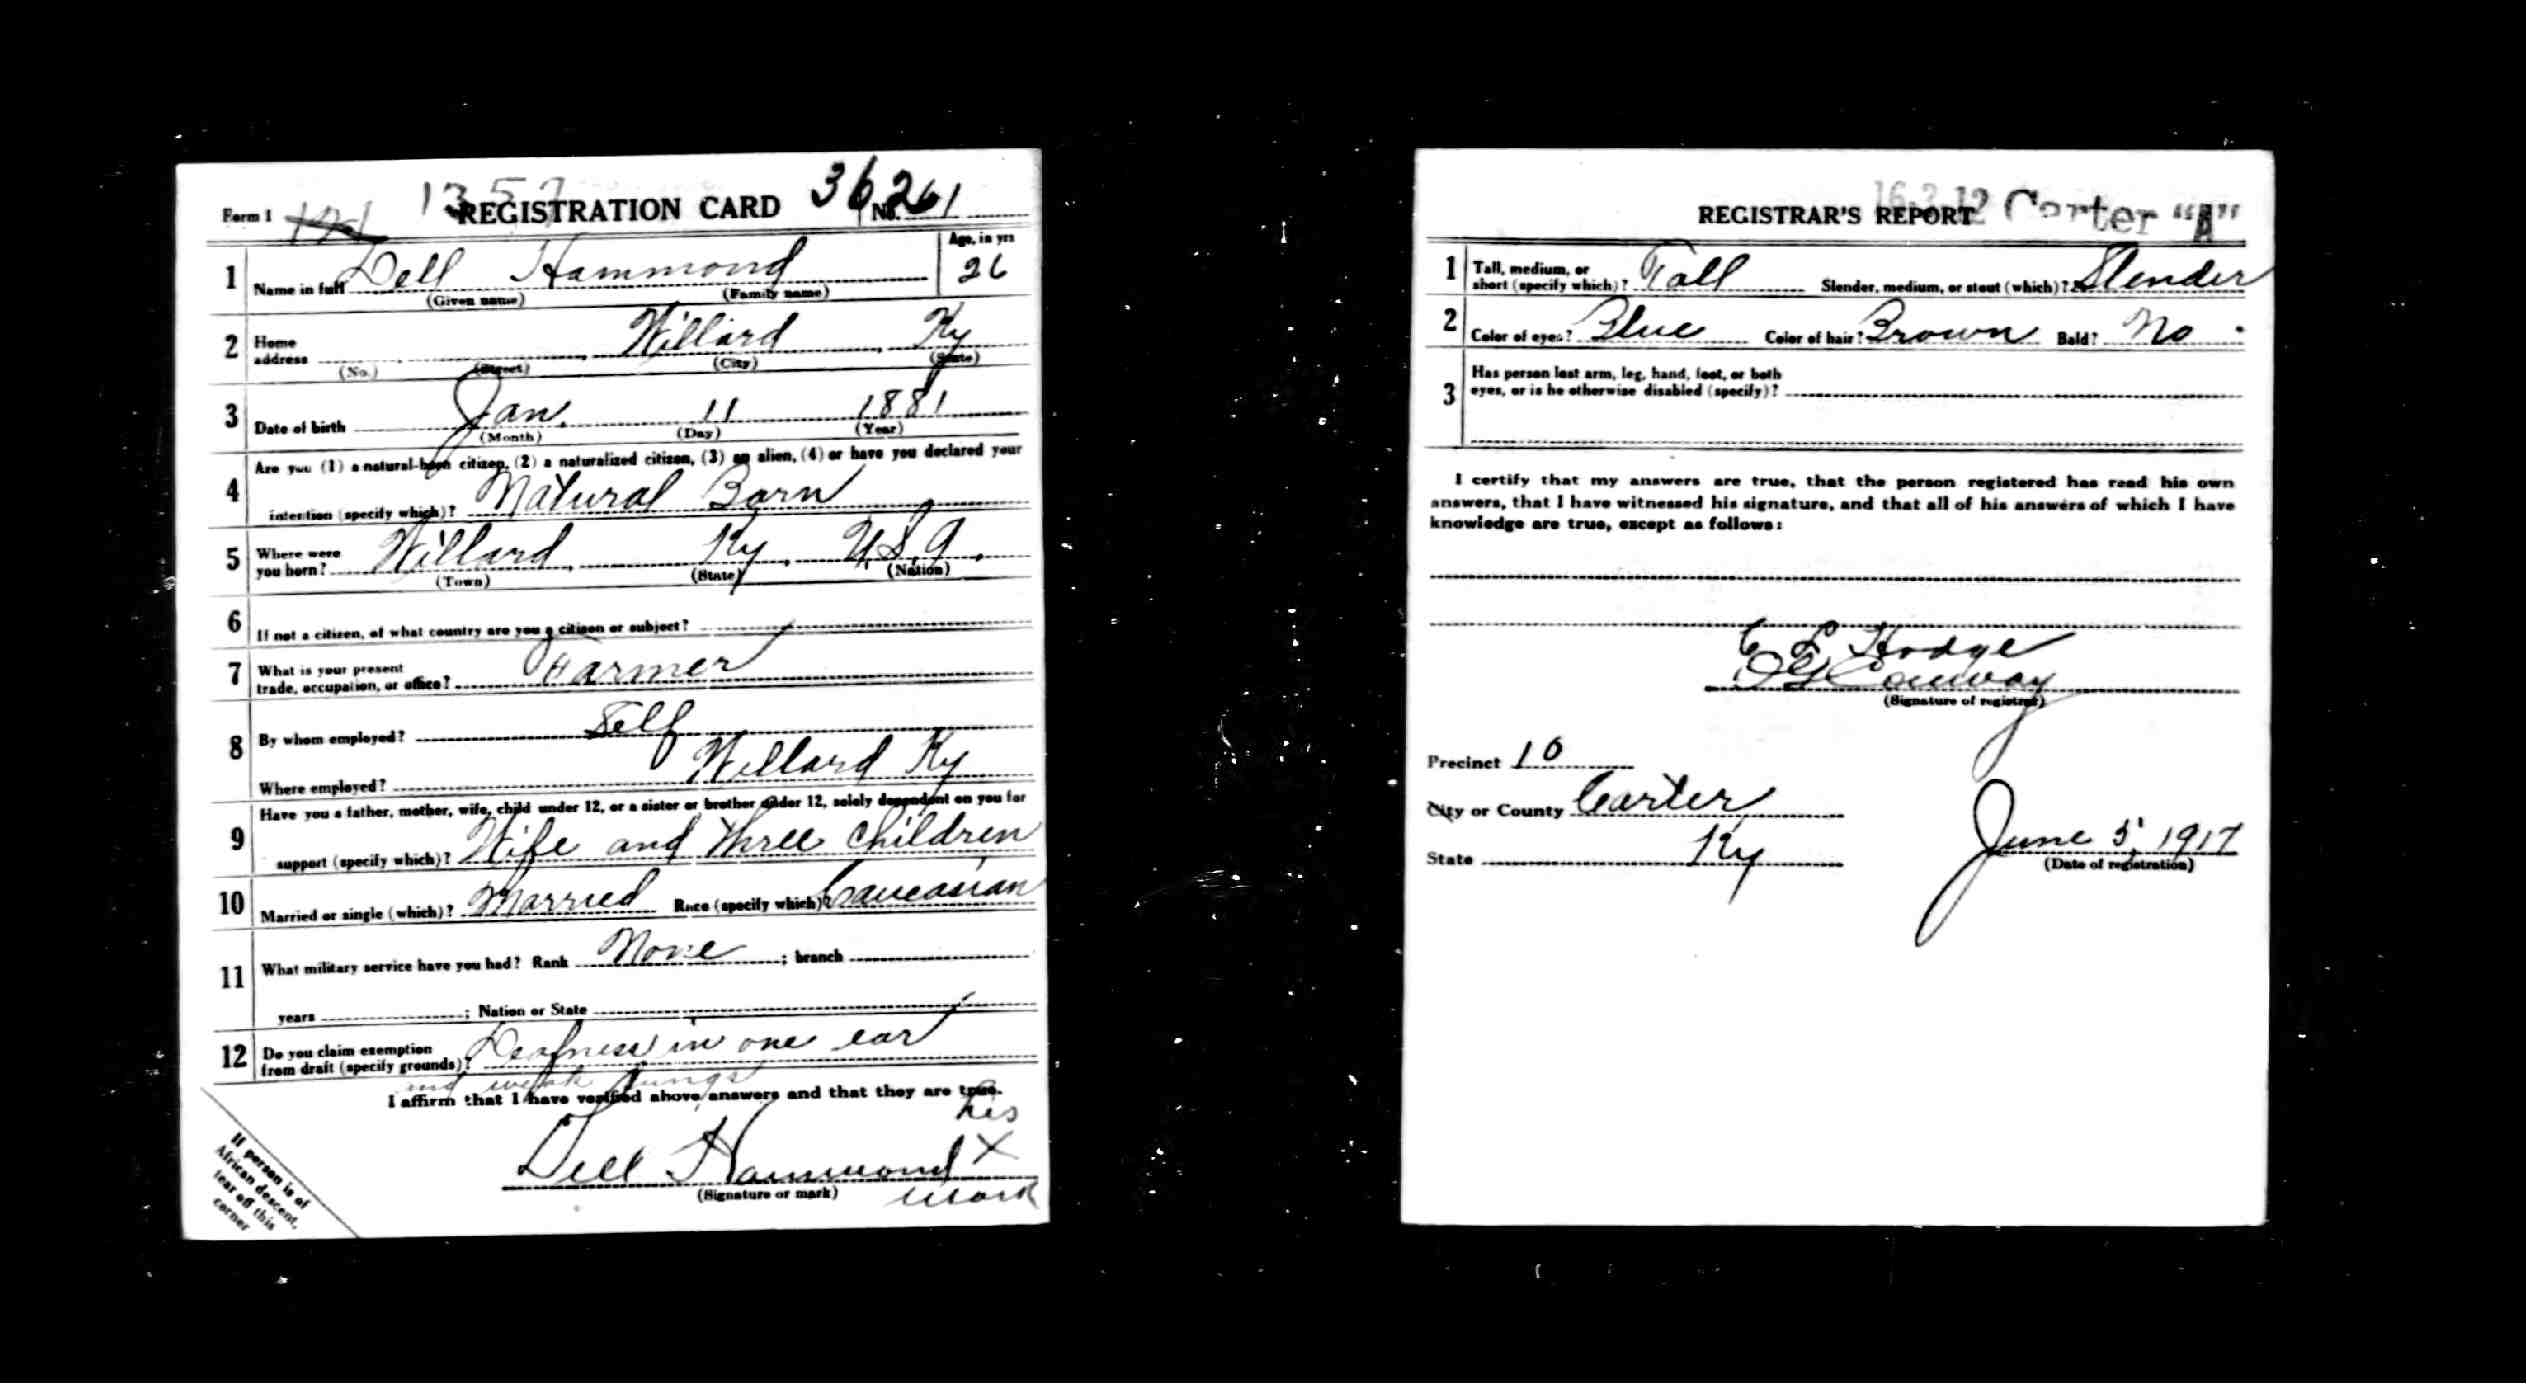 1357
Form 1 121 REGISTRATION CARD 36 No. 261
1 Name in full Dell Hammond Age, in yrs 26
(Given name) (Family name)
2 Home address Willard Ky
(No.) (Street) (City) (State)
3 Date of birth Jan. 11 1881
(Month) (Day) (Year)
4 Are you (1) a natural-born citizen, (2) a naturalized citizen, (3) an alien, (4) or have you declared your
intention (specify which)? Natural Born
5 Where were you born? Willard, Ky, U.S.A.
(Town) (State) (Nation)
6 If not a citizen, of what country are you a citizen or subject?
7 What is your present trade, occupation, or office? Farmer
8 By whom employed? Self
Where employed? Willard Ky
9 Have you a father, mother, wife, child under 12, or a sister or brother under 12, solely dependent on you for
support (specify which)? Wife and Three Children
10 Married or single (which)? Married Race (specify which)? Caucasian
11 What military service have you had? Rank None ; branch
years ; Nation or State
12 Do you claim exemption from draft (specify grounds)? Deafness in one ear
and weak lungs
I affirm that I have verified above answers and that they are true.
his
Dell Hammond X
(Signature or mark) mark
If person is of
African descent,
tear off this
corner
16-3-12 Carter "A"
REGISTRAR'S REPORT
1 Tall, medium, or short (specify which)? Tall Slender, medium, or stout (which)? Slender
2 Color of eyes? Blue Color of hair? Brown Bald? No
3 Has person lost arm, leg, hand, foot, or both
eyes, or is he otherwise disabled (specify)?
I certify that my answers are true, that the person registered has read his own
answers, that I have witnessed his signature, and that all of his answers of which I have
knowledge are true, except as follows:
C L Hodge
Conway
(Signature of registrar)
Precinct 10
City or County Carter
State Ky
June 5, 1917
(Date of registration)